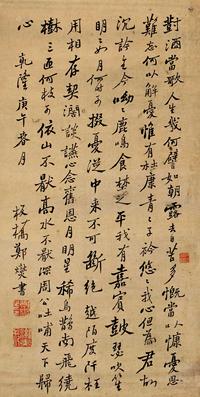 對酒當歌人生幾何譬如朝露去日苦多慨當以慷憂思
難忘何以解憂惟有杜康青々子衿悠々我心但為君故
沉吟至今呦々鹿鳴食埜之苹我有嘉賓鼓瑟吹笙
明々如月何時可掇憂從中來不可斷絕越陌度阡枉
用相存契闊談讌心念舊恩月明星稀烏鵲南飛繞
樹三匝何枝可依山不厭高水不厭深周公吐哺天下歸
心 乾隆庚午月
板橋鄭燮書